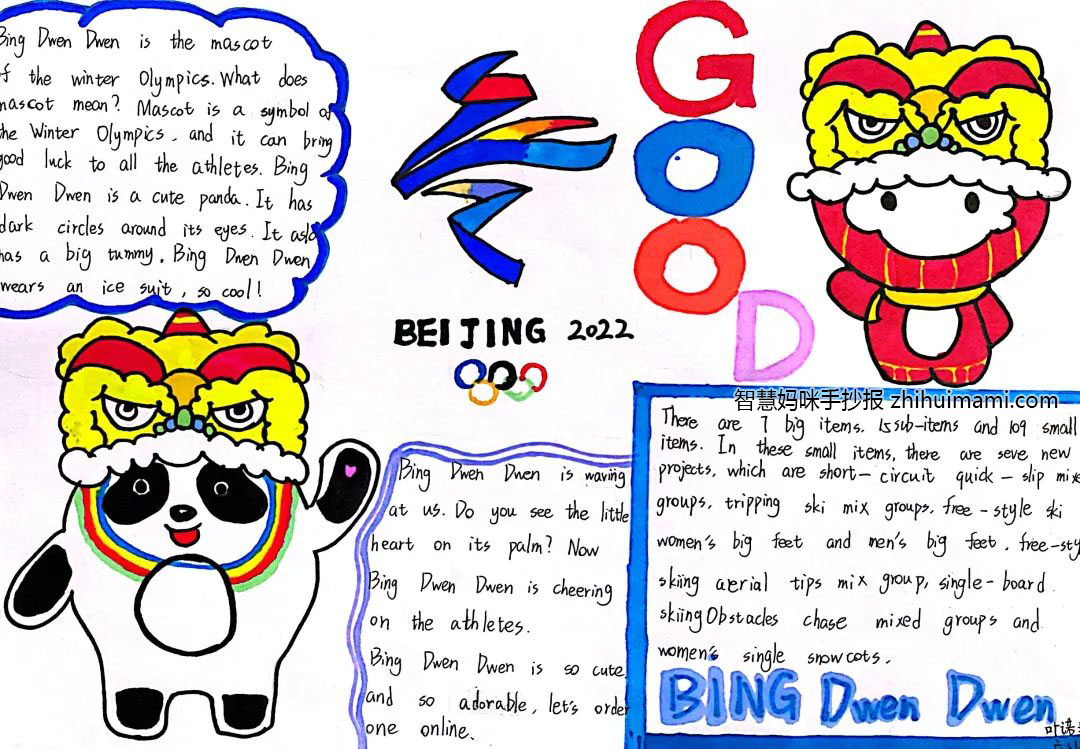 Bing Dwen Dwen is the mascot
of the winter Olympics. What does
mascot mean? Mascot is a symbol of
the Winter Olympics, and it can bring
good luck to all the athletes. Bing
Dwen Dwen is a cute panda. It has
dark circles around its eyes. It aslo
has a big tummy. Bing Dwen Dwen
wears an ice suit, so cool!
BEIJING 2022
GOOD
智慧妈咪手抄报 zhihuimami.com
Bing Dwen Dwen is waving
at us. Do you see the little
heart on its palm? Now
Bing Dwen Dwen is cheering
on the athletes.
Bing Dwen Dwen is so cute,
and so adorable, let's order
one online.
There are 7 big items. 15 sub-items and 109 small
items. In these small items, there are seve new
projects, which are short-circuit quick-slip mix
groups, tripping ski mix groups, free-style ski
women's big feet and men's big feet, free-sty
skiing aerial tips mix group, single-board
skiing Obstacles chase mixed groups and
women's single snow cots.
BING Dwen Dwen